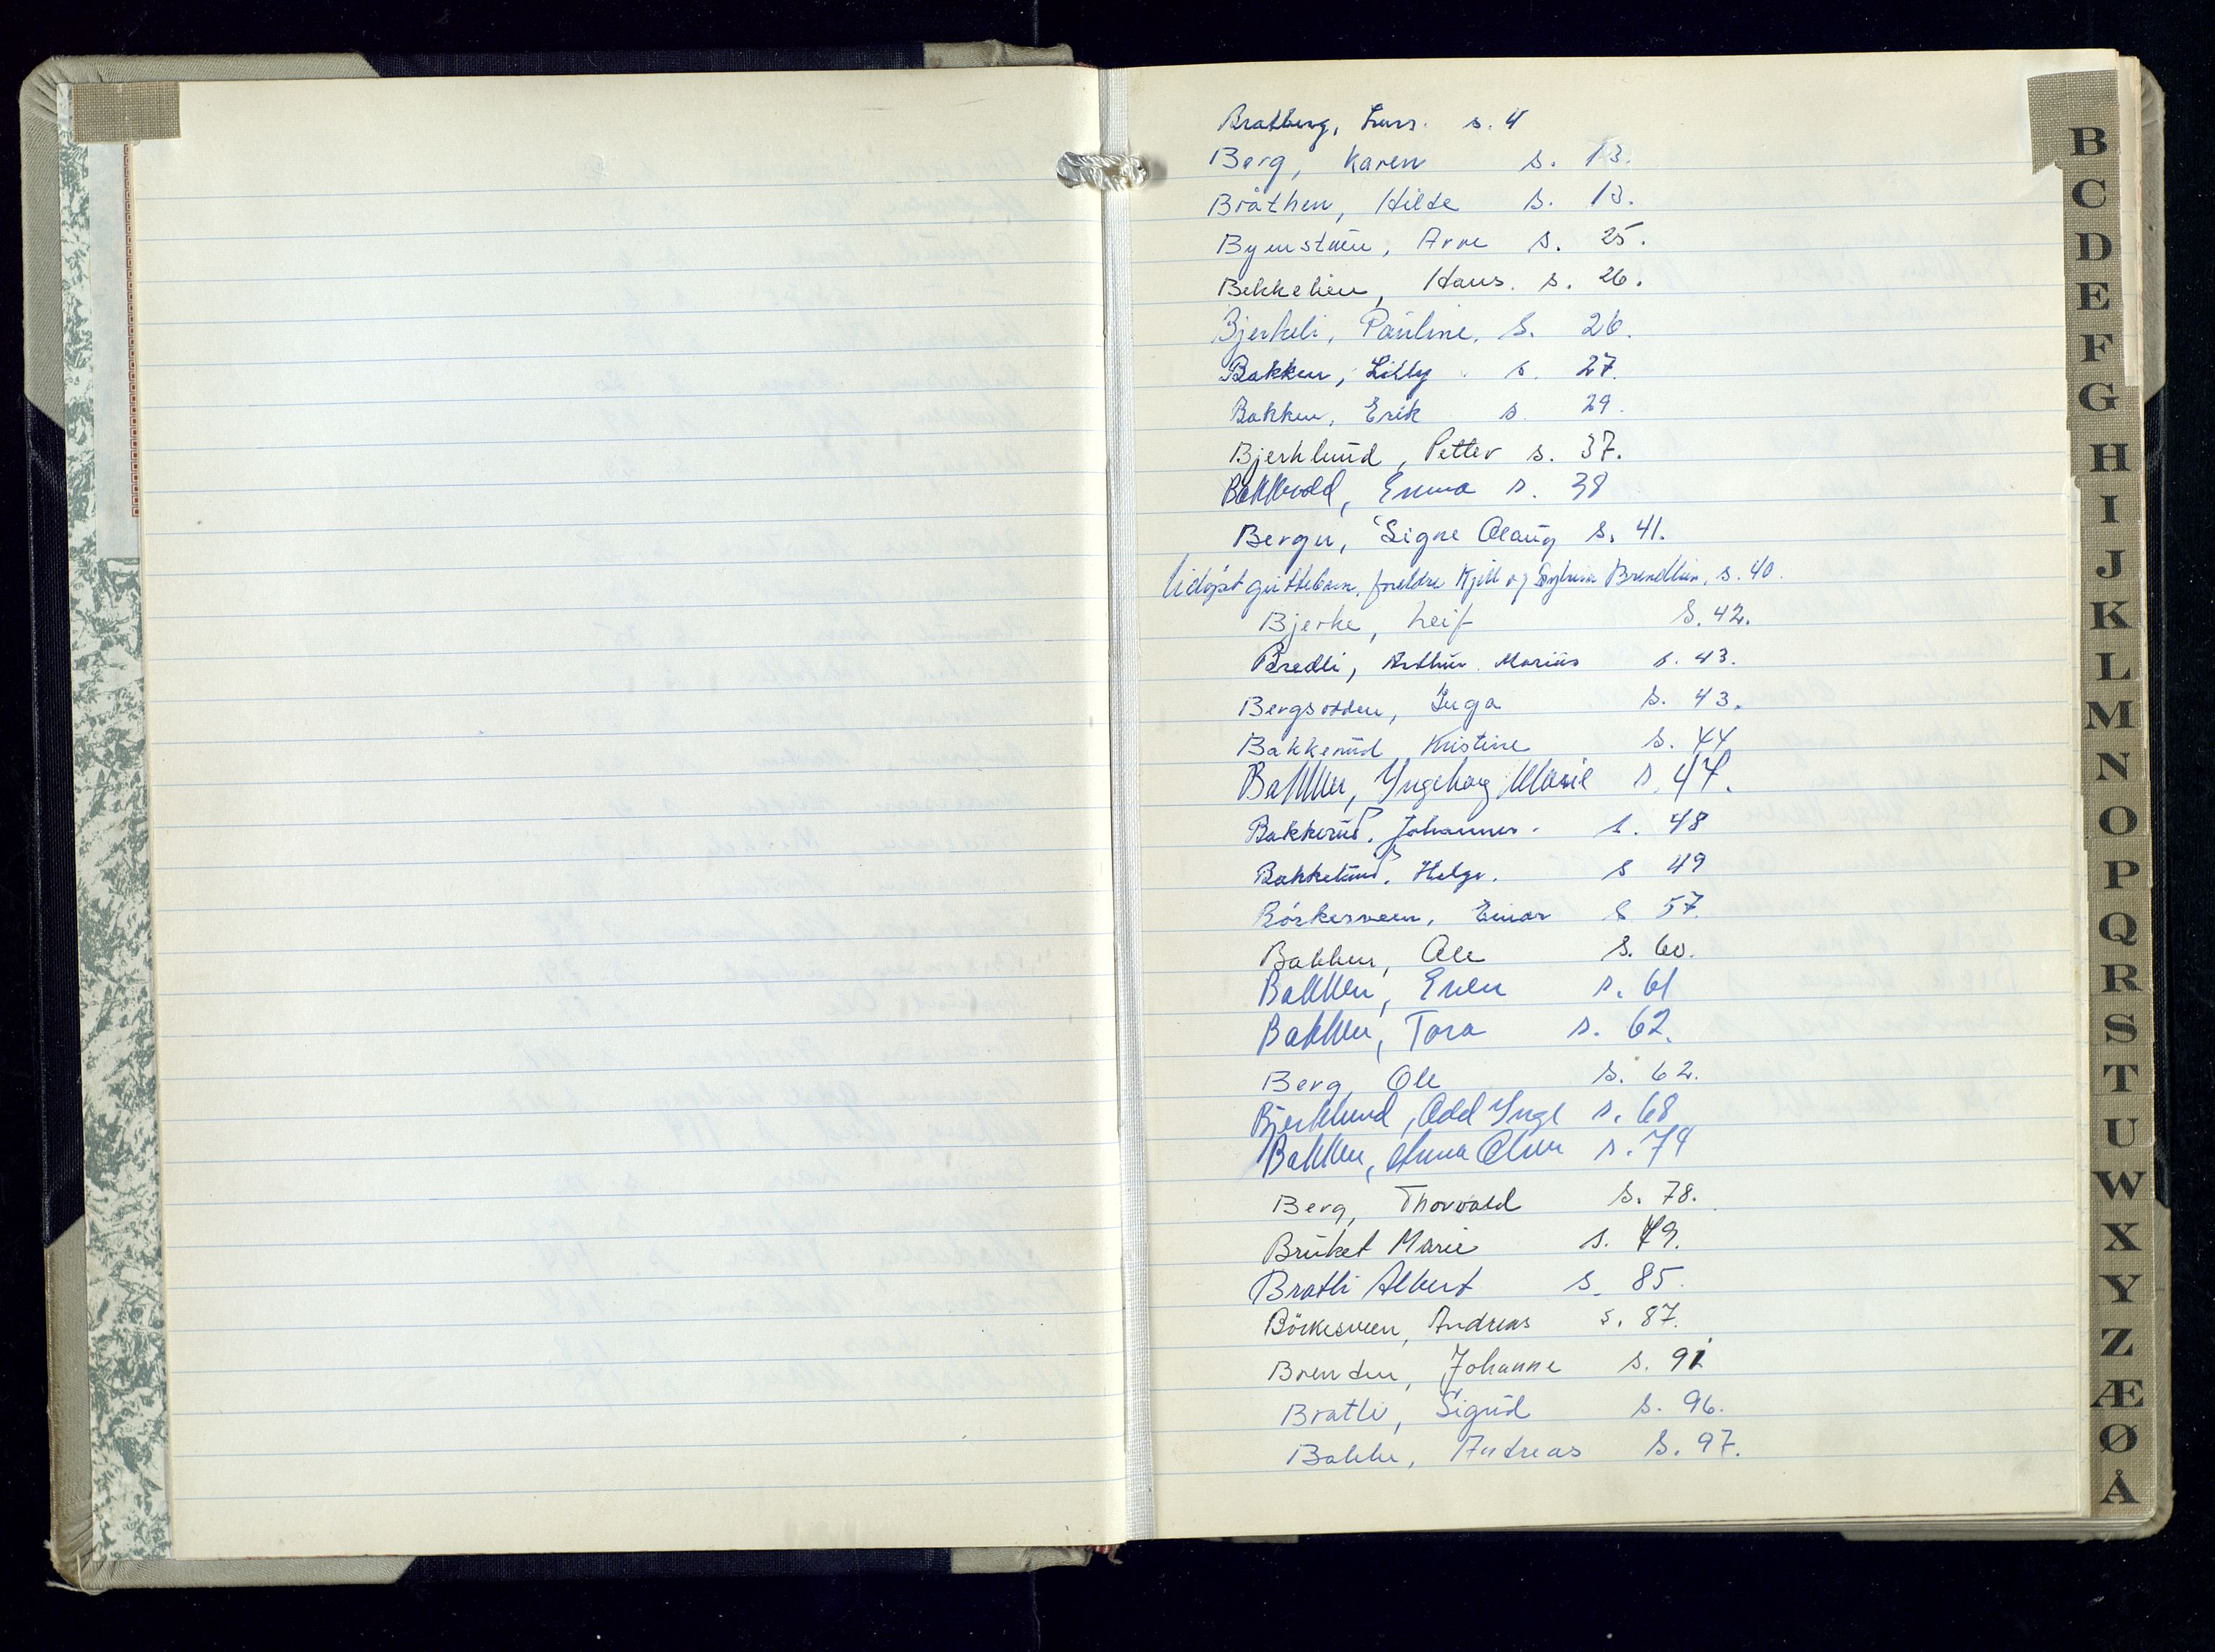 Bratberg, Lars. s. 4
Berg, Karen s. 13.
Bråthen, Hilde s. 13.
Bymstuen, Arne s. 25.
Bekkelien, Hans. s. 26.
Bjerkeli, Pauline, s. 26.
Bakken, Lilly s. 27.
Bakken, Erik s. 29.
Bjerklund, Petter s. 37.
Bakkvold, Emma s. 38
Bergu, Signe Olaug s. 41.
Udöpt guttebarn, foreldre Kjell og Brendlien, s. 40.
Bjerke, Leif s. 42.
Bredli, Arthur Marius s. 43.
Bergsodden, Inga s. 43.
Bakkerud Kristine s. 44
Bakken, Ingeborg Marie s. 47.
Bakkerud, Johannes. s. 48
Bakkelund, Helge. s 49
Börkesveen, Einar s 57.
Bakken, Ole s. 60.
Bakken, Even s. 61
Bakken, Tora s. 62.
Berg, Ole s. 62.
Bjerklund, Odd Inge s. 68
Bakken, Anna Oline s. 74
Berg, Thorvald s. 78.
Bruket Marie s. 79.
Bratli Albert s. 85.
Börkesveen, Andreas s. 87.
Brenden, Johanne s. 91
Bratli, Sigrid s. 96.
Bakke, Andreas s. 97.
B
C
D
E
F
G
H
I
J
K
L
M
N
O
P
Q
R
S
T
U
W
X
Y
Z
Æ
Ø
Å